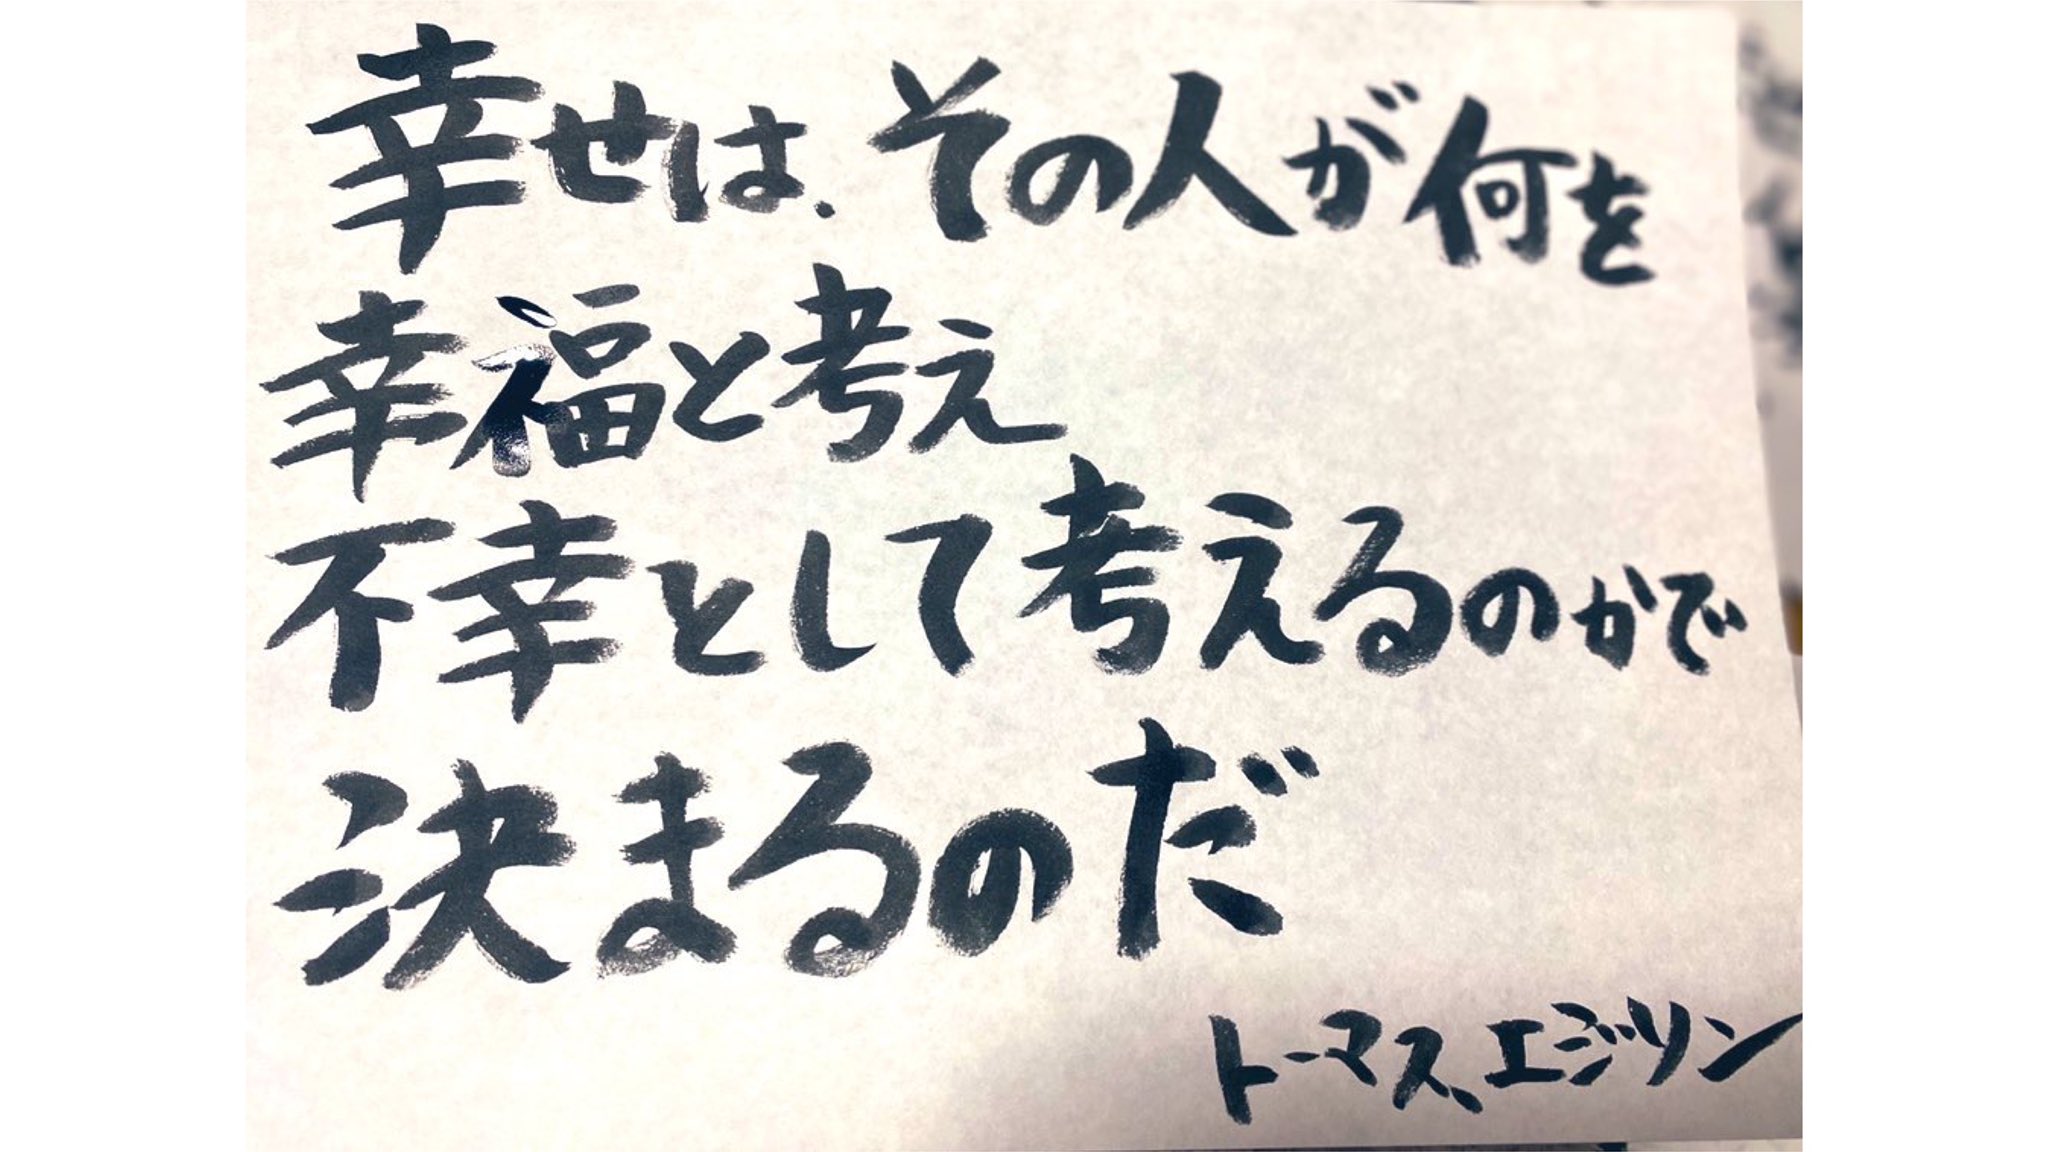 幸せは、その人が何を
幸福と考え
不幸として考えるのかで
決まるのだ
トーマス、エジソン